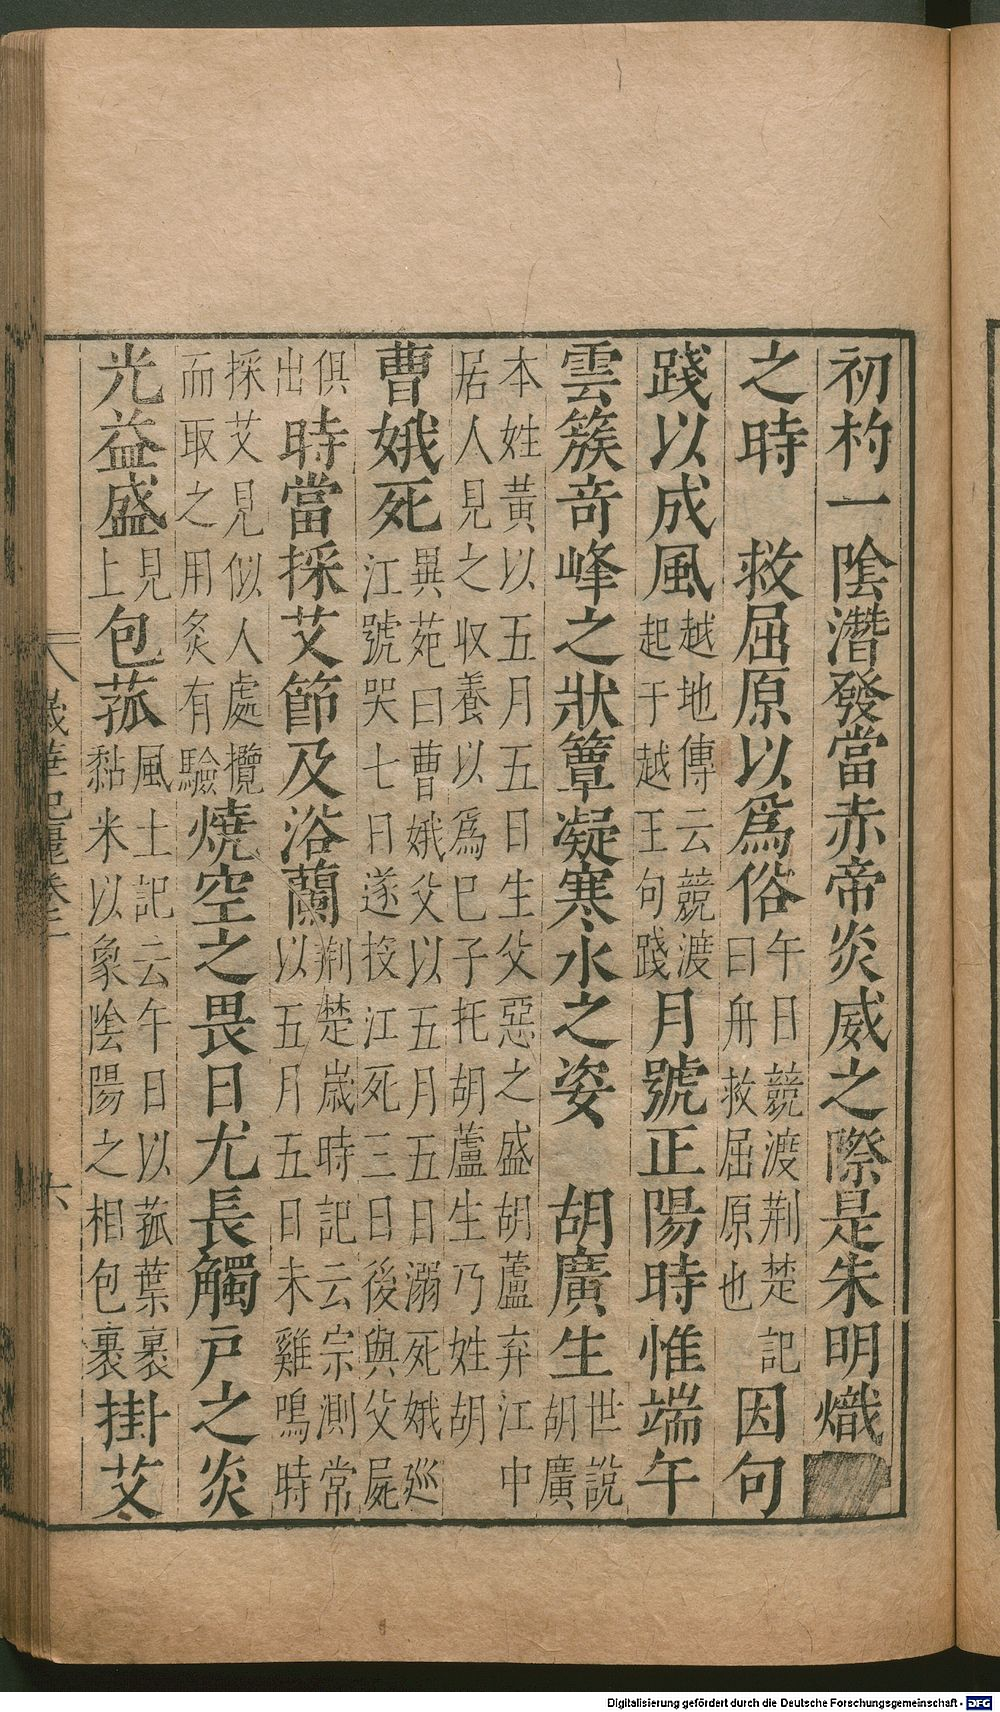 初杓一陰潛發當赤帝炎威之際是朱明熾
之時　救屈原以爲俗午日競渡荆楚記曰舟救屈原也因句
踐以成風越地傳云競渡起于越王句踐月號正陽時惟端午
雲簇竒峰之狀簟凝寒水之姿　胡廣生世說胡廣
本姓黃以五月五日生父惡之盛胡蘆弃江中居人見之收養以爲巳子托胡蘆生乃姓胡
曹娥死異苑曰曹娥父以五月五日溺死娥巡江號哭七日遂投江死三日後與父屍
俱出時當採艾節及浴蘭荆楚歲時記云宗測常以五月五日未雞鳴時
採艾見似人處攬而取之用灸有驗燒空之畏日尤長觸戸之炎
光益盛見上包菰風土記云午日以菰葉裹黏米以象陰陽之相包裹掛艾
歲華紀麗卷二
六
Digitalisierung gefördert durch die Deutsche Forschungsgemeinschaft - DFG